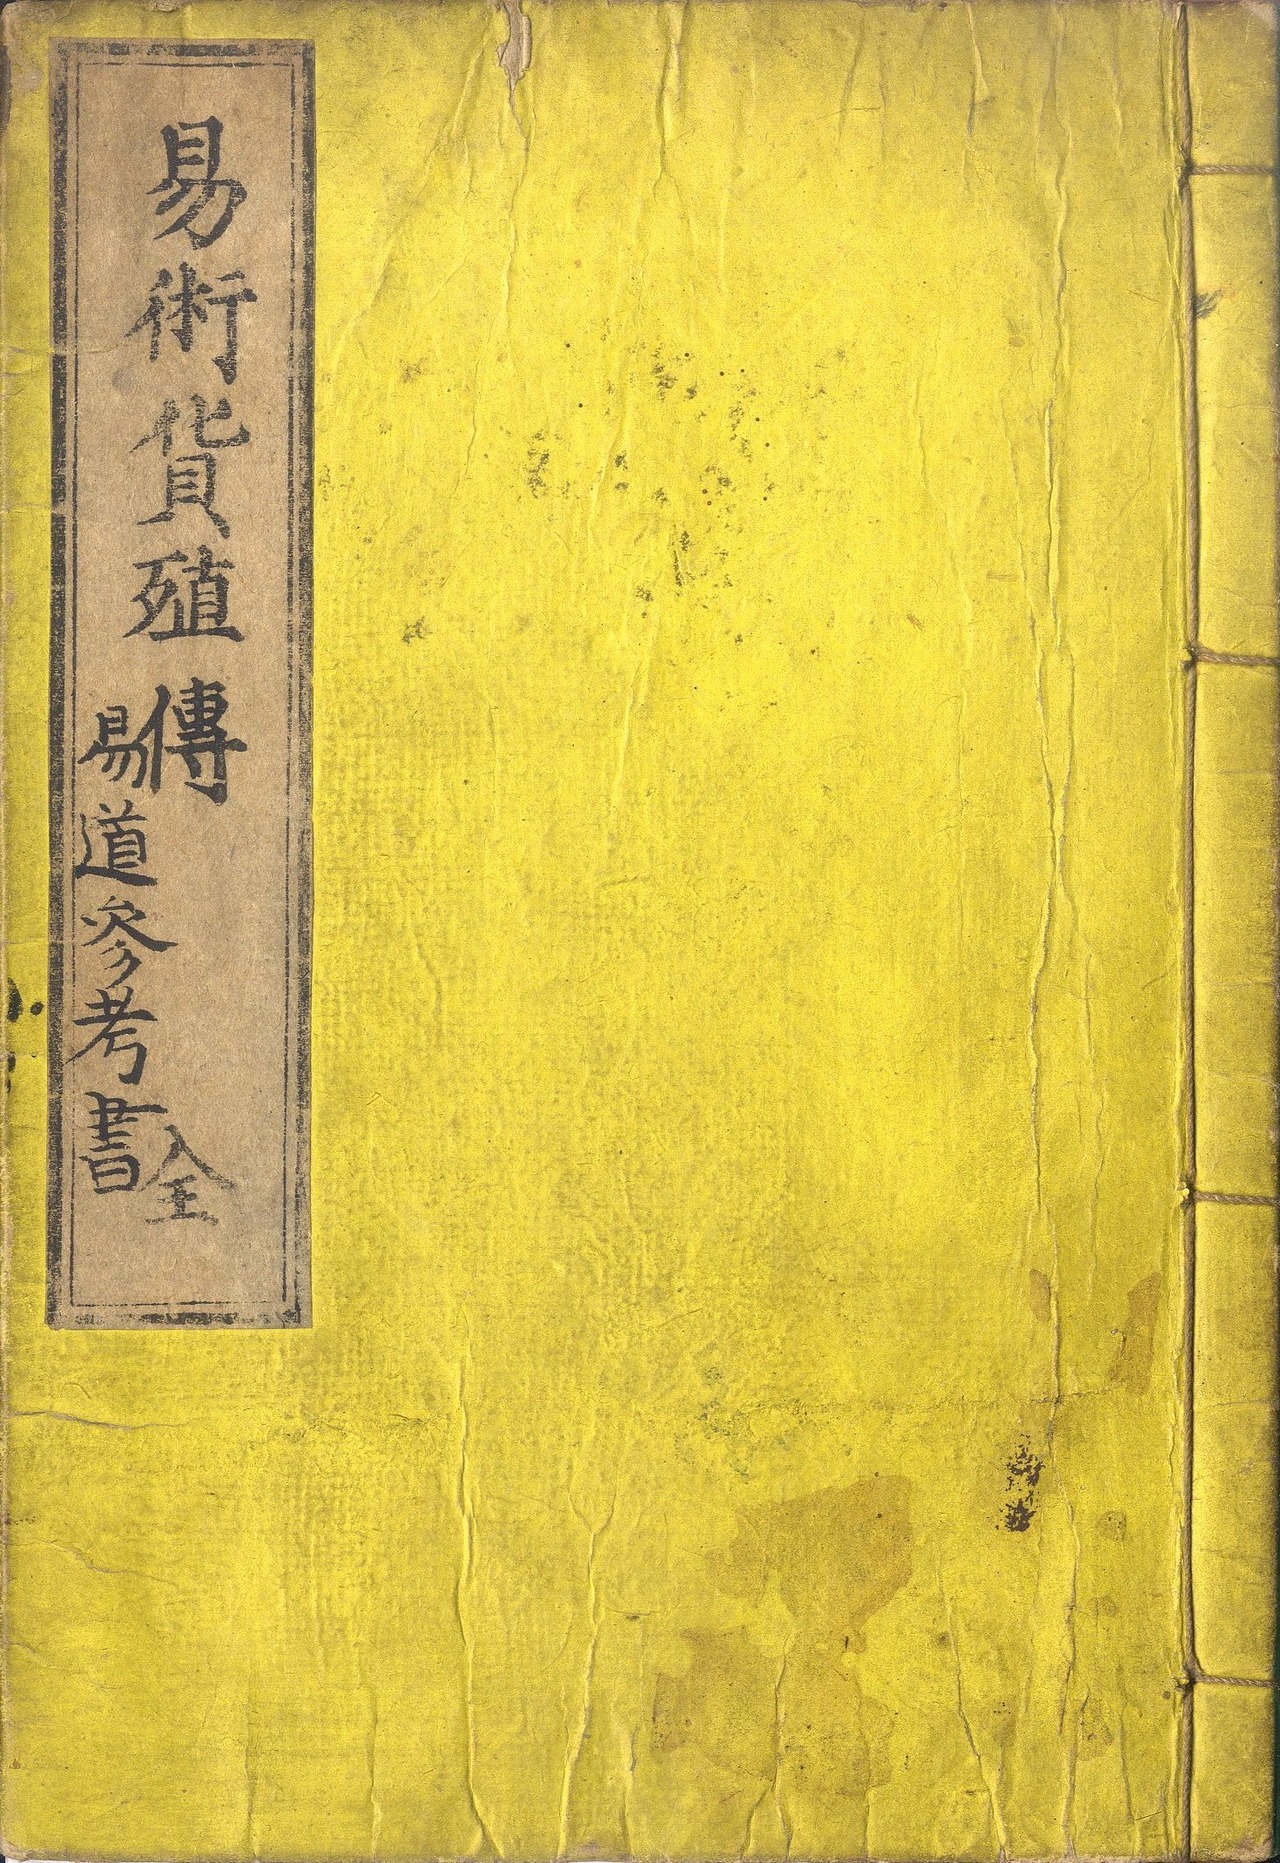 易術貨殖傳 全
易道參考書